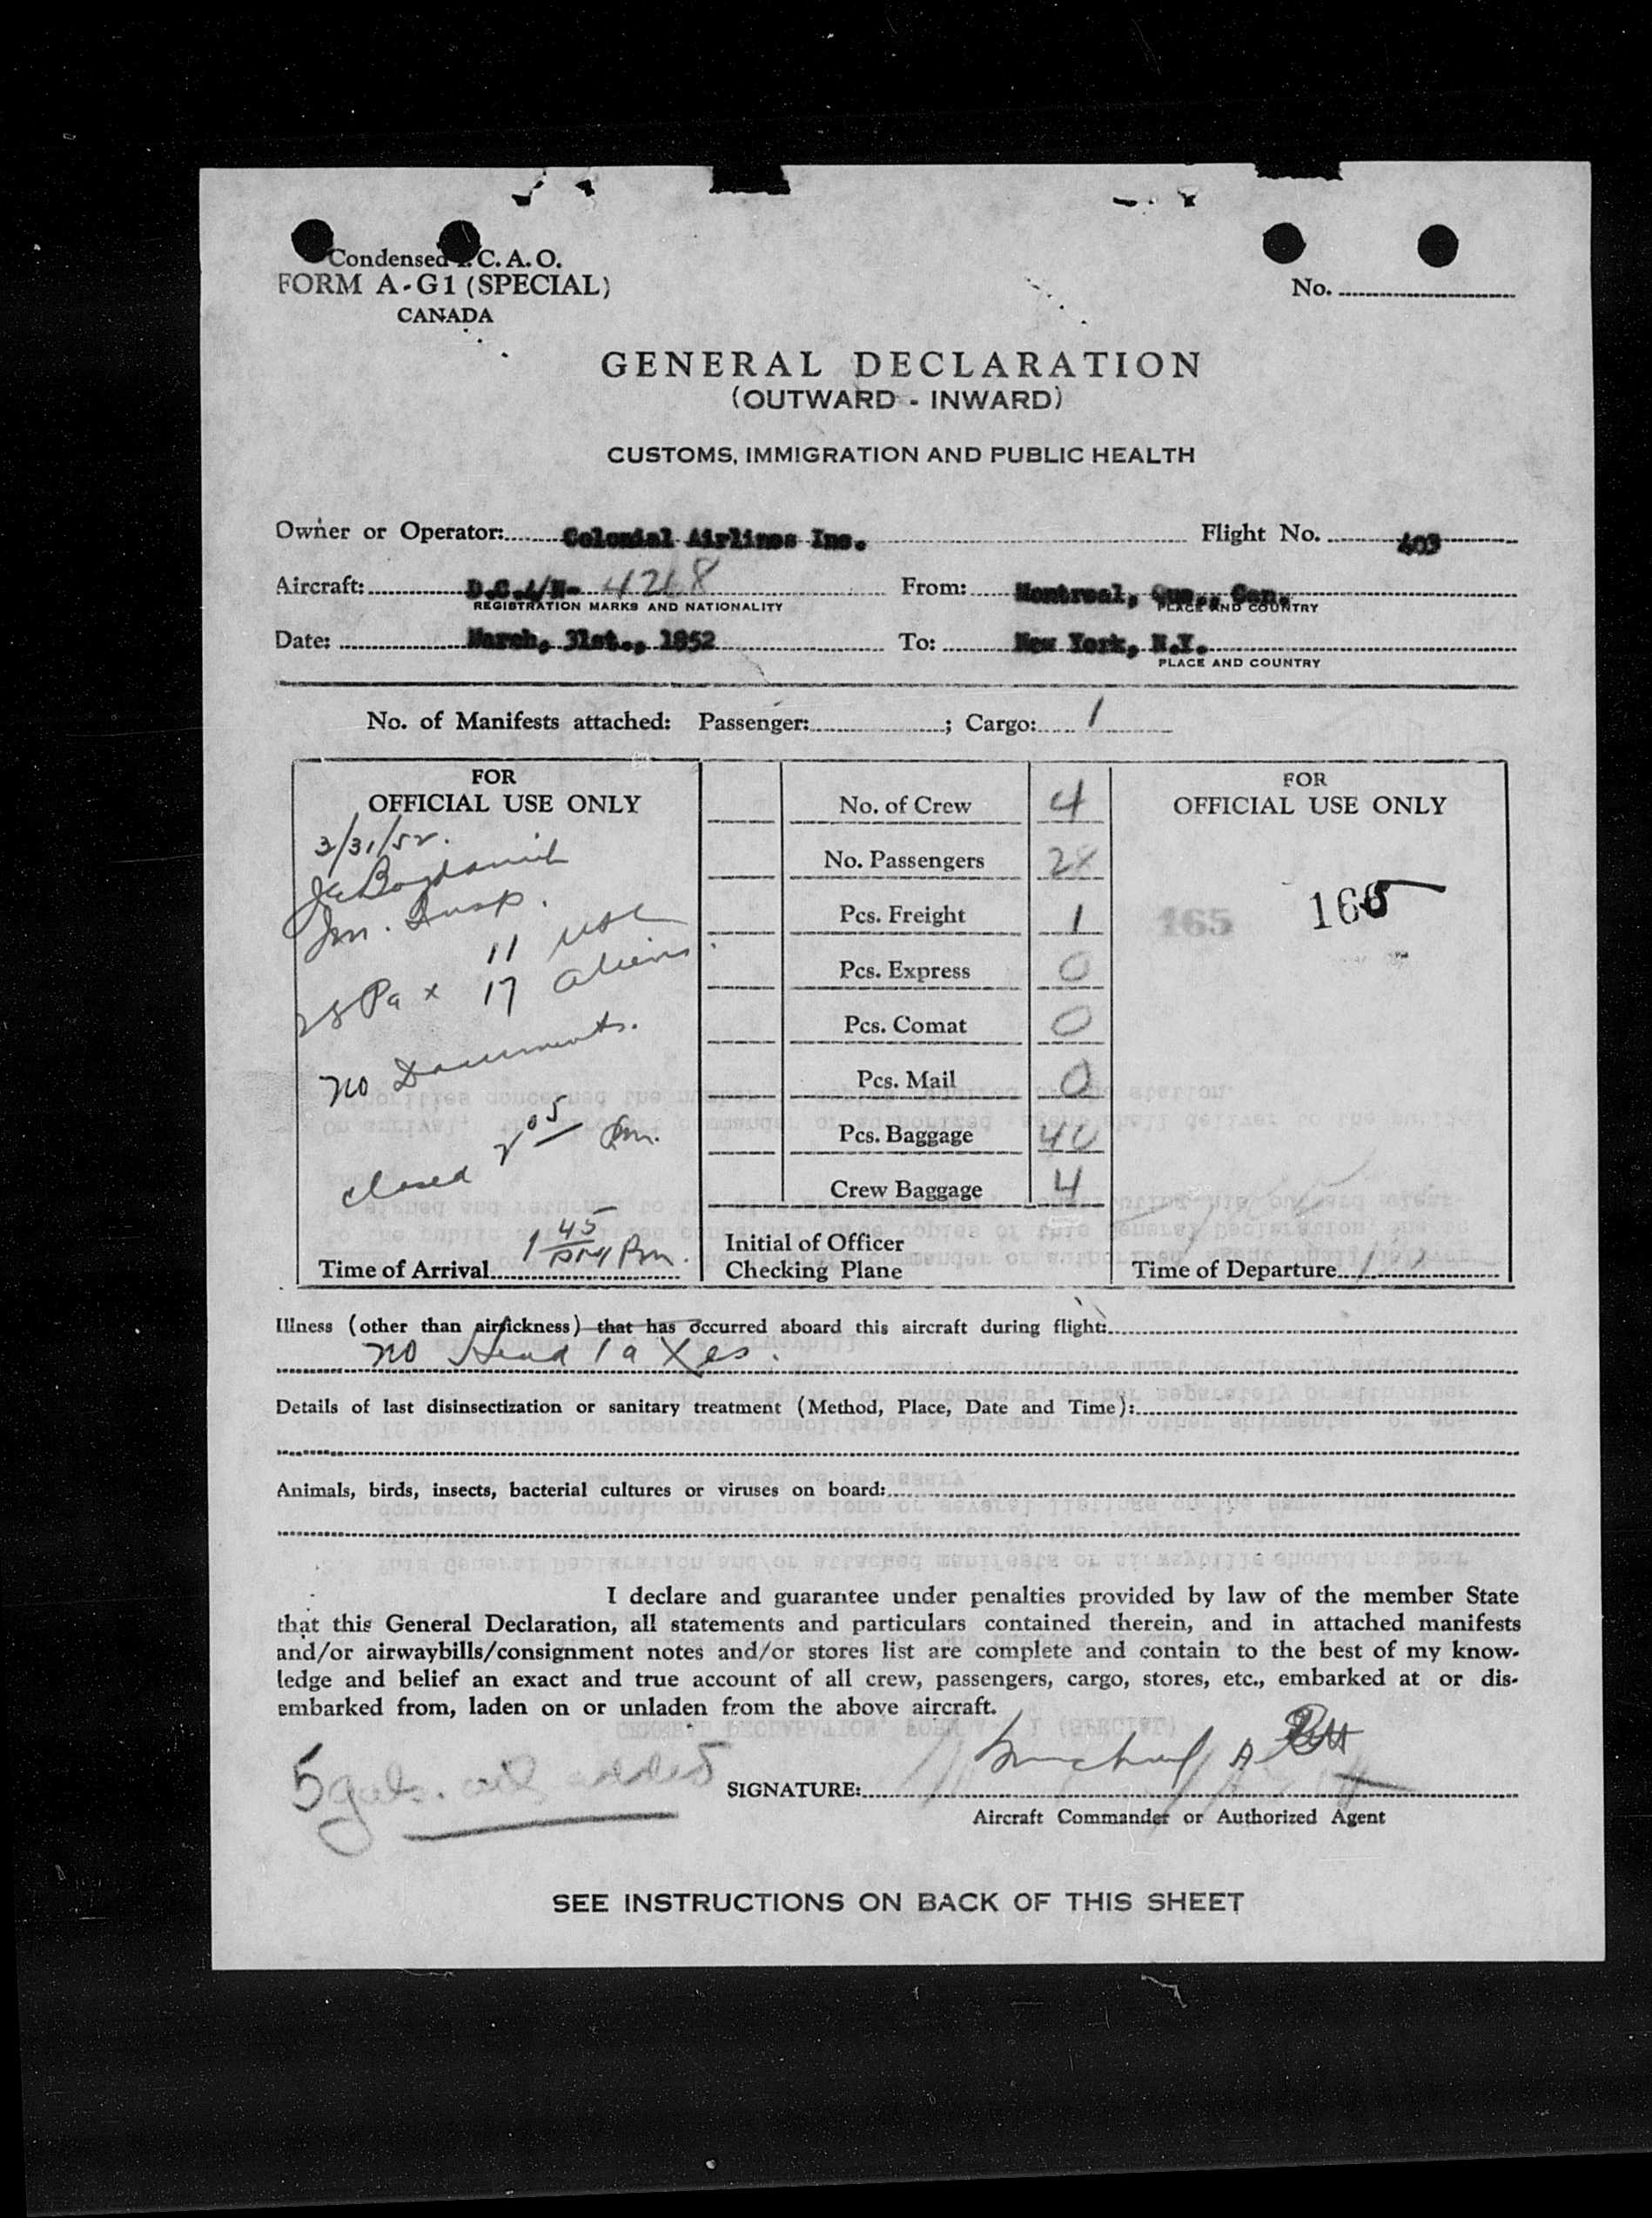 Condensed I.C.A.O.
FORM A-G1 (SPECIAL)
CANADA
No.
GENERAL DECLARATION
(OUTWARD - INWARD)
CUSTOMS, IMMIGRATION AND PUBLIC HEALTH
Owner or Operator: Colonial Airlines Inc. Flight No. 403
Aircraft: D.C.4/N- 4268 From: Montreal, Que., Can.
REGISTRATION MARKS AND NATIONALITY PLACE AND COUNTRY
Date: March, 31st., 1952 To: New York, N.Y.
PLACE AND COUNTRY
No. of Manifests attached: Passenger: ; Cargo: 1
FOR
OFFICIAL USE ONLY
3/31/52.
Im. Insp.
11 USC
28 Pax 17 Aliens
no Documents.
closed 2 05 Pm.
1 45 Pm.
Time of Arrival
No. of Crew 4
No. Passengers 28
Pcs. Freight 1
Pcs. Express 0
Pcs. Comat 0
Pcs. Mail 0
Pcs. Baggage 40
Crew Baggage 4
Initial of Officer
Checking Plane
FOR
OFFICIAL USE ONLY
165 166
Time of Departure
Illness (other than airsickness) that has occurred aboard this aircraft during flight:
no Head Taxes.
Details of last disinsectization or sanitary treatment (Method, Place, Date and Time):
Animals, birds, insects, bacterial cultures or viruses on board:
I declare and guarantee under penalties provided by law of the member State
that this General Declaration, all statements and particulars contained therein, and in attached manifests
and/or airwaybills/consignment notes and/or stores list are complete and contain to the best of my know-
ledge and belief an exact and true account of all crew, passengers, cargo, stores, etc., embarked at or dis-
embarked from, laden on or unladen from the above aircraft.
5 gals. oil added
SIGNATURE: Michael A
Aircraft Commander or Authorized Agent
SEE INSTRUCTIONS ON BACK OF THIS SHEET